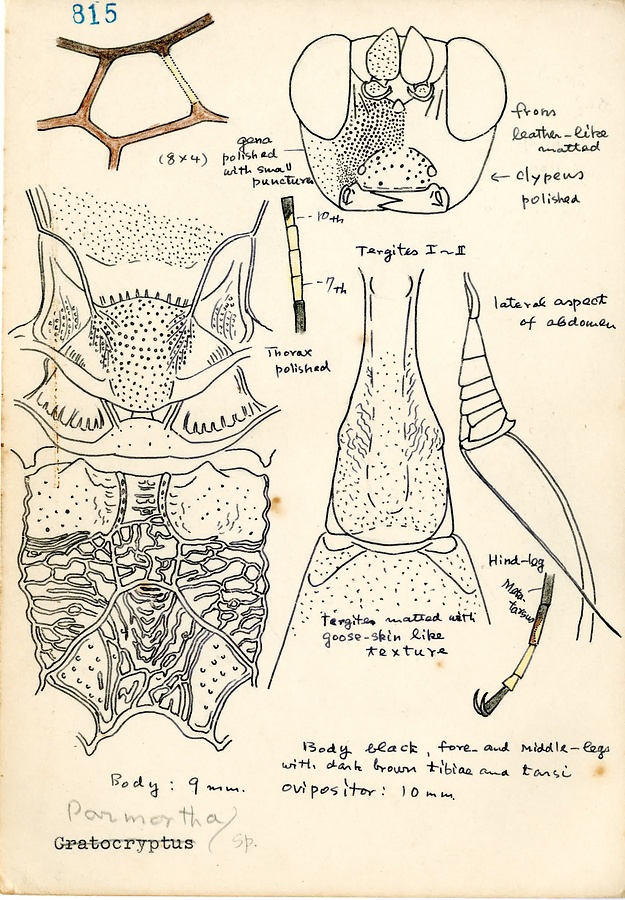 815
(8x4)
gena
polished
with small
punctures
frons
leather-like
matted
← clypeus
polished
10th
7th
Thorax
polished
Tergites I~II
lateral aspect
of abdomen
Hind-leg
Meta-
tarsus
Tergites matted with
goose-skin like
texture
Body black, fore- and middle-legs
with dark brown tibiae and tarsi
Body: 9 mm.
ovipositor: 10 mm.
Parmortha
Gratocryptus sp.